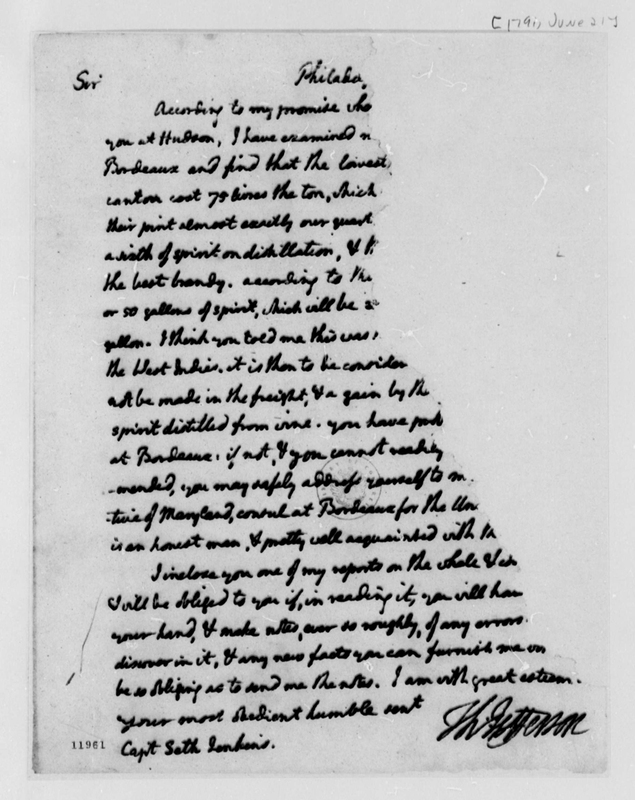 [1791, June 21]
Sir Philada,
According to my promise who
you at Hudson, I have examined
Bordeaux and find that the lowest
cantons cost 75 livres the ton, which
their pint almost exactly our quart
a sixth of spirit on distillation, & th
the best brandy. according to the
or 50 gallons of spirit, which will be
gallon. I think you told me this was
the West Indies. it is then to be consider
not be made in the freight, & a gain by th
spirit distilled from wine. you have
at Bordeaux: if not, & you cannot readily
-mended, you may safely address yourself to m
-tive of Maryland, consul at Bordeaux for the Un
is an honest man, & pretty well acquainted with th
I inclose you one of my reports on the whale & co
& will be obliged to you if, in reading it, you will hav
your hand, & make notes, ever so roughly, of any errors
discover in it, & any new facts you can furnish me
be so obliging as to send me the notes. I am with great esteem.
your most obedient humble servt
Th: Jefferson
11961
Capt Seth Jenkins.